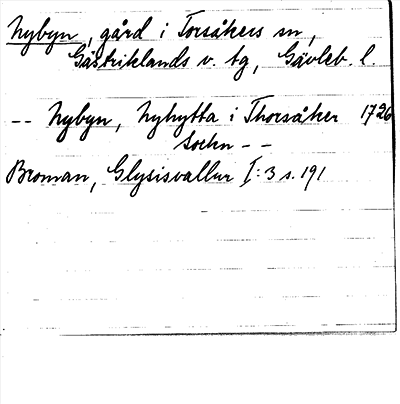 Nybyn, gård i Torsåkers sn,
Gästriklands v. tg, Gävleb. l.
-- Nybyn, Nyhytta i Thorsåker 1726
Sochn --
Broman, Glysisvallur I:3 s. 191